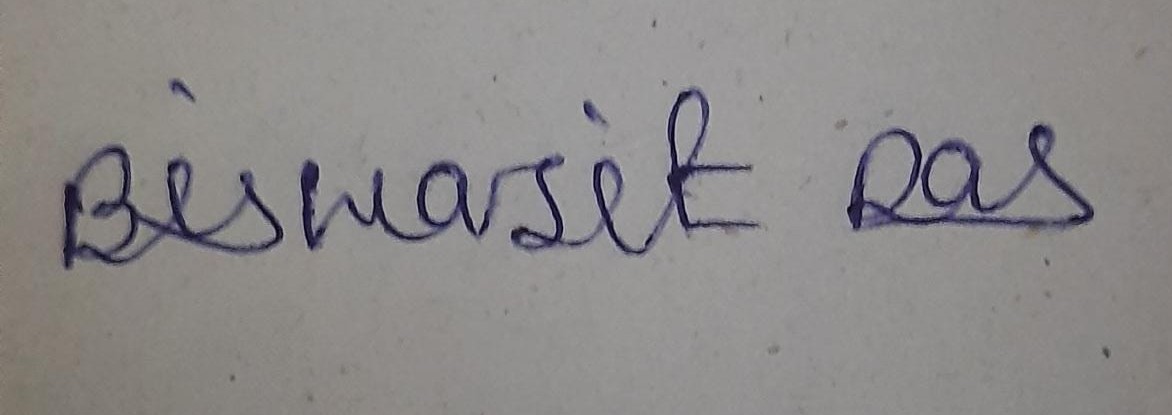 Biswajit Das